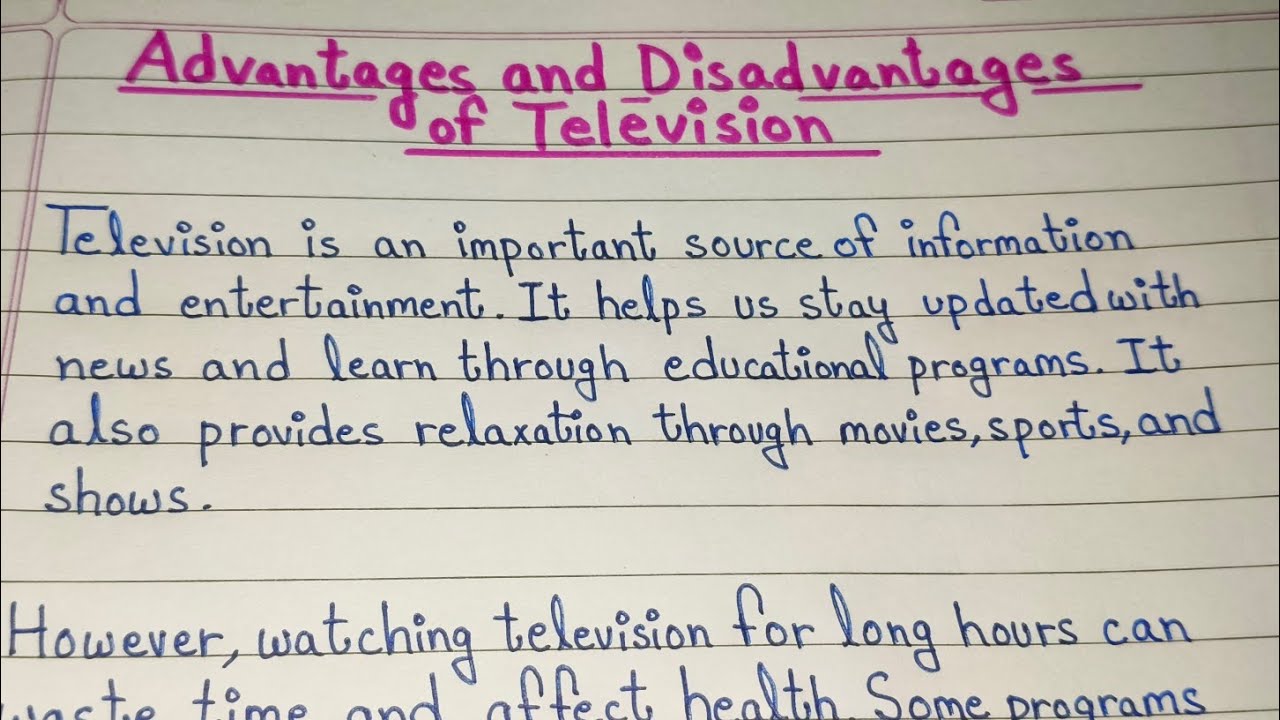 Advantages and Disadvantages
of Television
Television is an important source of information
and entertainment. It helps us stay updated with
news and learn through educational programs. It
also provides relaxation through movies, sports, and
shows.
However, watching television for long hours can
waste time and affect health. Some programs